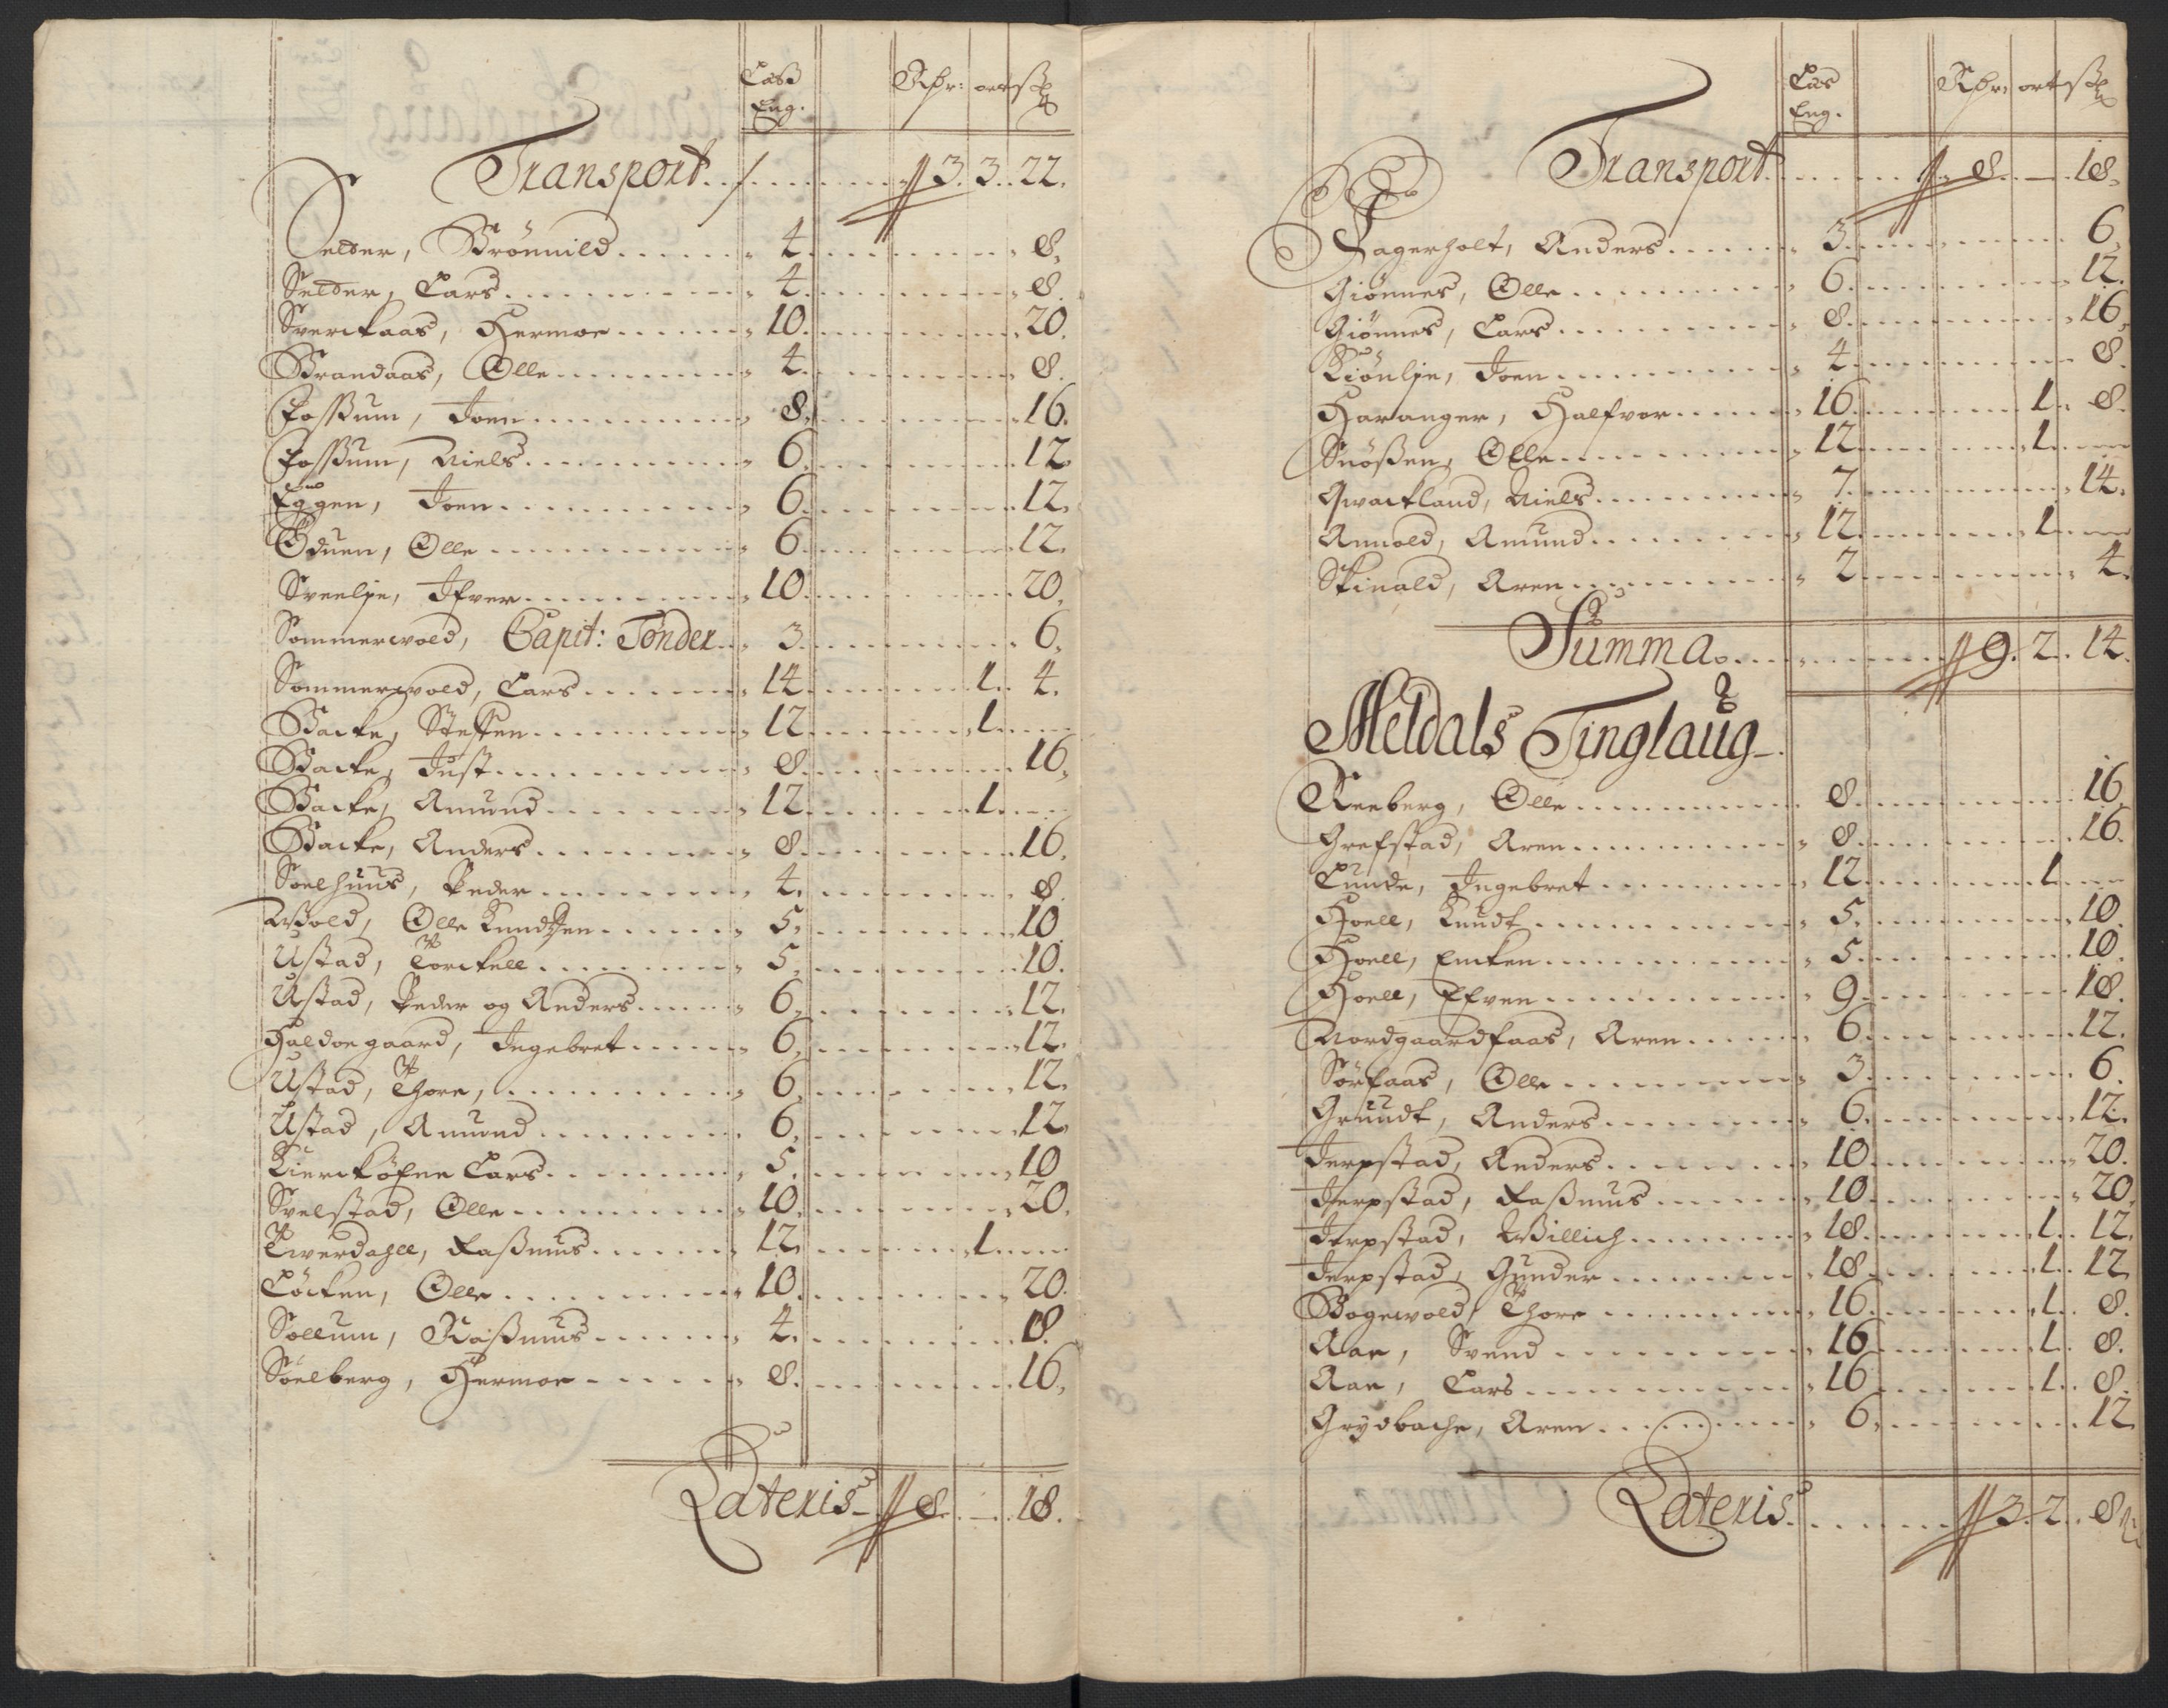 Lass Eng. Rdr: ort ß
Transport 3. 3. 22.
Selder, Brönnild 4 8.
Selder, Lars 4 8.
Sverckaas, Hermoe 10 20.
Brandaas, Olle 4 8.
Fossum, Joen 8 16.
Fossum, Niels 6 12
Eggen, Joen 6 12.
Öduen, Olle 6 12.
Sveelje, Ifver 10 20.
Sommerwold, Capit: Tönder 3 6.
Sommerwold, Lars 14 1. 4.
Backe, Steffen 12 1.
Backe, Just 8 16.
Backe, Amund 12 1.
Backe, Anders 8 16.
Soelhuus, Peder 4. 8.
Wold, Olle Knudsen 5. 10
Ustad, Torckell 5. 10.
Ustad, Peder og Anders 6. 12.
Haldoegaard, Ingebret 6. 12.
Ustad, Thore, 6. 12.
Ustad, Amund 6. 12.
Kierckösne Lars 5. 10
Svelstad, Olle 10. 20.
Tverdahll, Rasmus 12. 1.
Löcken, Olle 10. 20.
Sollum, Rasmus 4. 8.
Söelberg, Hermoe 8. 16.
Lateris 8. — 18.
Las Eng. Rdr: ort ß
Transport 8. — 18.
Fagerholt, Anders 3 6.
Giönnes, Olle 6 12.
Giönnes, Lars 8 16.
Kiönlje, Joen 4 8.
Haranger, Halfvor 16 1. 8.
Snößen, Olle 12 1.
Qwackland, Niels 7 14.
Annold, Amund 12 1.
Skinald, Aren 2 4.
Summa 9. 2. 14.
Meldals Tinglaug
Reeberg, Olle 8. 16.
Grefstad, Aren 8. 16.
Lunde, Ingebret 12 1.
Hoell, Knudt 5. 10.
Hoell, Encken 5. 10.
Hoell, Efven 9 18.
Nordgaardsaas, Aren 6 12.
Sörsaas, Olle 3 6.
Gruudt, Anders 6. 12.
Jerpstad, Anders 10 20.
Jerpstad, Rasmus 10 20.
Jerpstad, Willich 18 1. 12.
Jerpstad, Gunder 18 1. 12
Bogewold, Thore 16 1. 8.
Aae, Svend 16 1. 8.
Aae, Lars 16 1. 8.
Grydbache, Aren 6. 12
Lateris 3. 2. 8.